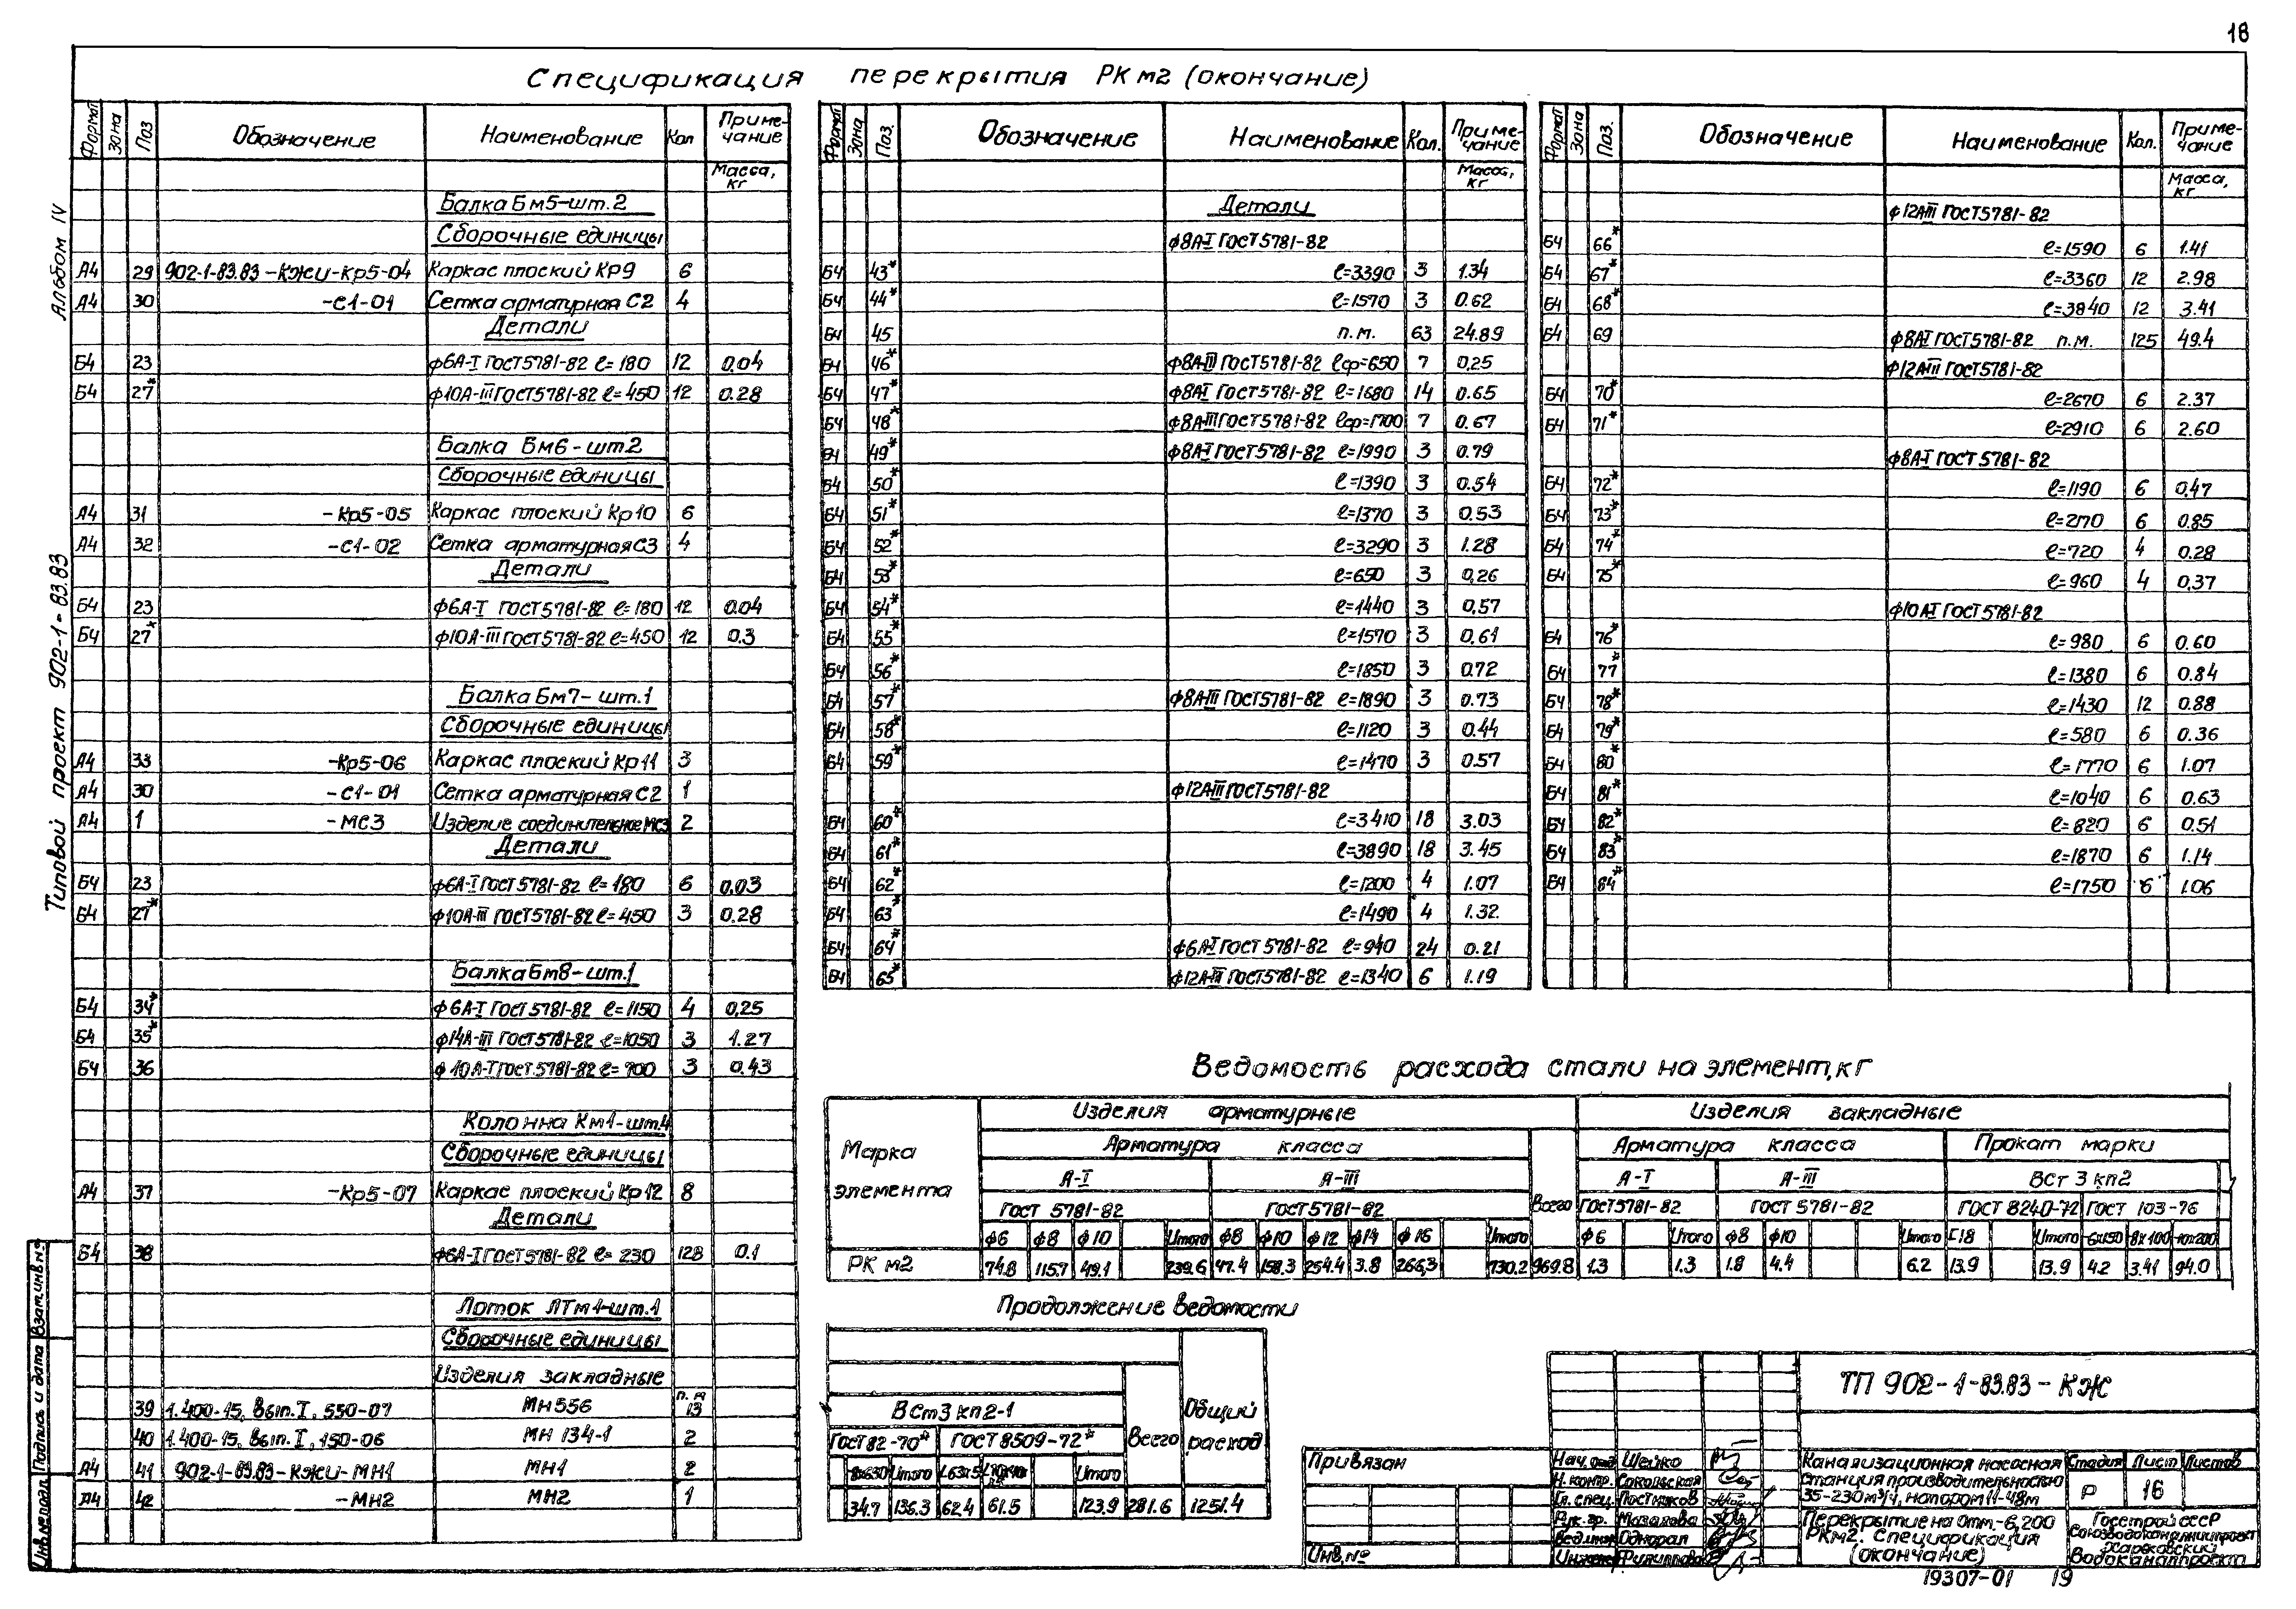 18
Спецификация перекрытия РКм2 (окончание)
Формат Зона Поз Обозначение Наименование Кол Примечание
Масса, кг
Балка Бм5-шт.2
Сборочные единицы
А4 29 902-1-83.83-КЖИ-Кр5-04 Каркас плоский КР9 6
А4 30 -С1-01 Сетка арматурная С2 4
Детали
Б4 23 ф6А-I ГОСТ 5781-82 ℓ=180 12 0.04
Б4 27* ф10А-III ГОСТ 5781-82 ℓ=450 12 0.28
Балка Бм6-шт.2
Сборочные единицы
А4 31 -Кр5-05 Каркас плоский Кр10 6
А4 32 -С1-02 Сетка арматурная С3 4
Детали
Б4 23 ф6А-I ГОСТ 5781-82 ℓ=180 12 0.04
Б4 27* ф10А-III ГОСТ 5781-82 ℓ=450 12 0.3
Балка Бм7-шт.1
Сборочные единицы
А4 33 -Кр5-06 Каркас плоский Кр11 3
А4 30 -С1-01 Сетка арматурная С2 1
А4 1 -МС3 Изделие соединительное МС3 2
Детали
Б4 23 ф6А-I ГОСТ 5781-82 ℓ=180 6 0.03
Б4 27* ф10А-III ГОСТ 5781-82 ℓ=450 3 0.28
Балка Бм8-шт.1
Б4 34* ф6А-I ГОСТ 5781-82 ℓ=1150 4 0,25
Б4 35* ф14А-III ГОСТ 5781-82 ℓ=1050 3 1.27
Б4 36 ф10А-I ГОСТ 5781-82 ℓ=700 3 0.43
Колонна Км1-шт.4
Сборочные единицы
А4 37 -Кр5-07 Каркас плоский Кр12 8
Детали
Б4 38 ф6А-I ГОСТ 5781-82 ℓ=230 128 0.1
Лоток ЛТм1-шт.1
Сборочные единицы
Изделия закладные
39 1.400-15, вып.I, 550-07 МН556 п.м 13
40 1.400-15, вып.I, 150-06 МН 134-1 2
А4 41 902-1-83.83-КЖИ-МН1 МН1 2
А4 42 -МН2 МН2 1
Формат Зона Поз. Обозначение Наименование Кол. Примечание
Масса, кг
Детали
ф8А-I ГОСТ 5781-82
Б4 43* ℓ=3390 3 1.34
Б4 44* ℓ=1570 3 0.62
Б4 45 п.м. 63 24.89
Б4 46* ф8А-III ГОСТ 5781-82 ℓср=650 7 0,25
Б4 47* ф8А-I ГОСТ 5781-82 ℓ=1680 14 0.65
Б4 48* ф8А-III ГОСТ 5781-82 ℓср=1700 7 0.67
Б4 49* ф8А-I ГОСТ 5781-82 ℓ=1990 3 0.79
Б4 50* ℓ=1390 3 0.54
Б4 51* ℓ=1370 3 0.53
Б4 52* ℓ=3290 3 1.28
Б4 53* ℓ=650 3 0,26
Б4 54* ℓ=1440 3 0,57
Б4 55* ℓ=1570 3 0.61
Б4 56* ℓ=1850 3 0.72
Б4 57* ф8А-III ГОСТ 5781-82 ℓ=1890 3 0.73
Б4 58* ℓ=1120 3 0.44
Б4 59* ℓ=1470 3 0.57
ф12А-III ГОСТ 5781-82
Б4 60* ℓ=3410 18 3.03
Б4 61* ℓ=3890 18 3.45
Б4 62* ℓ=1200 4 1.07
Б4 63* ℓ=1490 4 1.32
Б4 64* ф6А-I ГОСТ 5781-82 ℓ=940 24 0.21
Б4 65* ф12А-III ГОСТ 5781-82 ℓ=1340 6 1.19
Формат Зона Поз. Обозначение Наименование Кол. Примечание
Масса, кг
ф12А-III ГОСТ 5781-82
Б4 66* ℓ=1590 6 1.41
Б4 67* ℓ=3360 12 2.98
Б4 68* ℓ=3840 12 3.41
Б4 69 ф8А-I ГОСТ 5781-82 п.м. 125 49.4
ф12А-III ГОСТ 5781-82
Б4 70* ℓ=2670 6 2.37
Б4 71* ℓ=2910 6 2.60
ф8А-I ГОСТ 5781-82
Б4 72* ℓ=1190 6 0,47
Б4 73* ℓ=2170 6 0.85
Б4 74* ℓ=720 4 0.28
Б4 75* ℓ=960 4 0,37
ф10А-I ГОСТ 5781-82
Б4 76* ℓ=980 6 0.60
Б4 77* ℓ=1380 6 0.84
Б4 78* ℓ=1430 12 0.88
Б4 79* ℓ=580 6 0.36
Б4 80* ℓ=1770 6 1.07
Б4 81* ℓ=1040 6 0.63
Б4 82* ℓ=820 6 0.51
Б4 83* ℓ=1870 6 1.14
Б4 84* ℓ=1750 6 1.06
Ведомость расхода стали на элемент, кг
Марка элемента Изделия арматурные Изделия закладные
Арматура класса Всего Арматура класса Прокат марки
А-I А-III А-I А-III ВСт 3 кп2
ГОСТ 5781-82 ГОСТ 5781-82 ГОСТ 5781-82 ГОСТ 5781-82 ГОСТ 8240-72 ГОСТ 103-76
ф6 ф8 ф10 Итого ф8 ф10 ф12 ф14 ф16 Итого ф6 Итого ф8 ф10 Итого С18 Итого -6х150 -8х100 -10х200
РК м2 74.8 115.7 49.1 239.6 47.4 158.3 254.4 3.8 266,3 730.2 969.8 1.3 1.3 1.8 4.4 6.2 13.9 13.9 42 3.41 94.0
Продолжение ведомости
ВСт3 кп2-1 Всего Общий расход
ГОСТ 82-70* ГОСТ 8509-72*
8х630 Итого L63х5 Итого
34.7 136.3 62.4 61.5 123.9 281.6 1251.4
Привязан
Инв.№
ТП 902-1-83.83-КЖ
Нач.отд Шейко
Н.контр. Сокольская
Гл. спец. Постников
Рук. гр. Мазалова
Вед.инж Однорал
Инженер Филиппова
Канализационная насосная станция производительностью 35-230 м³/ч, напором 11-48м
Стадия Лист Листов
Р 16
Перекрытие на отм.-6,200 РКм2. Спецификация (окончание)
Госстрой СССР Союзводоканалниипроект Харьковский Водоканалпроект
19307-01 19
Альбом IV
Типовой проект 902-1-83.83
Инв.№ подл. Подпись и дата Взам.инв.№